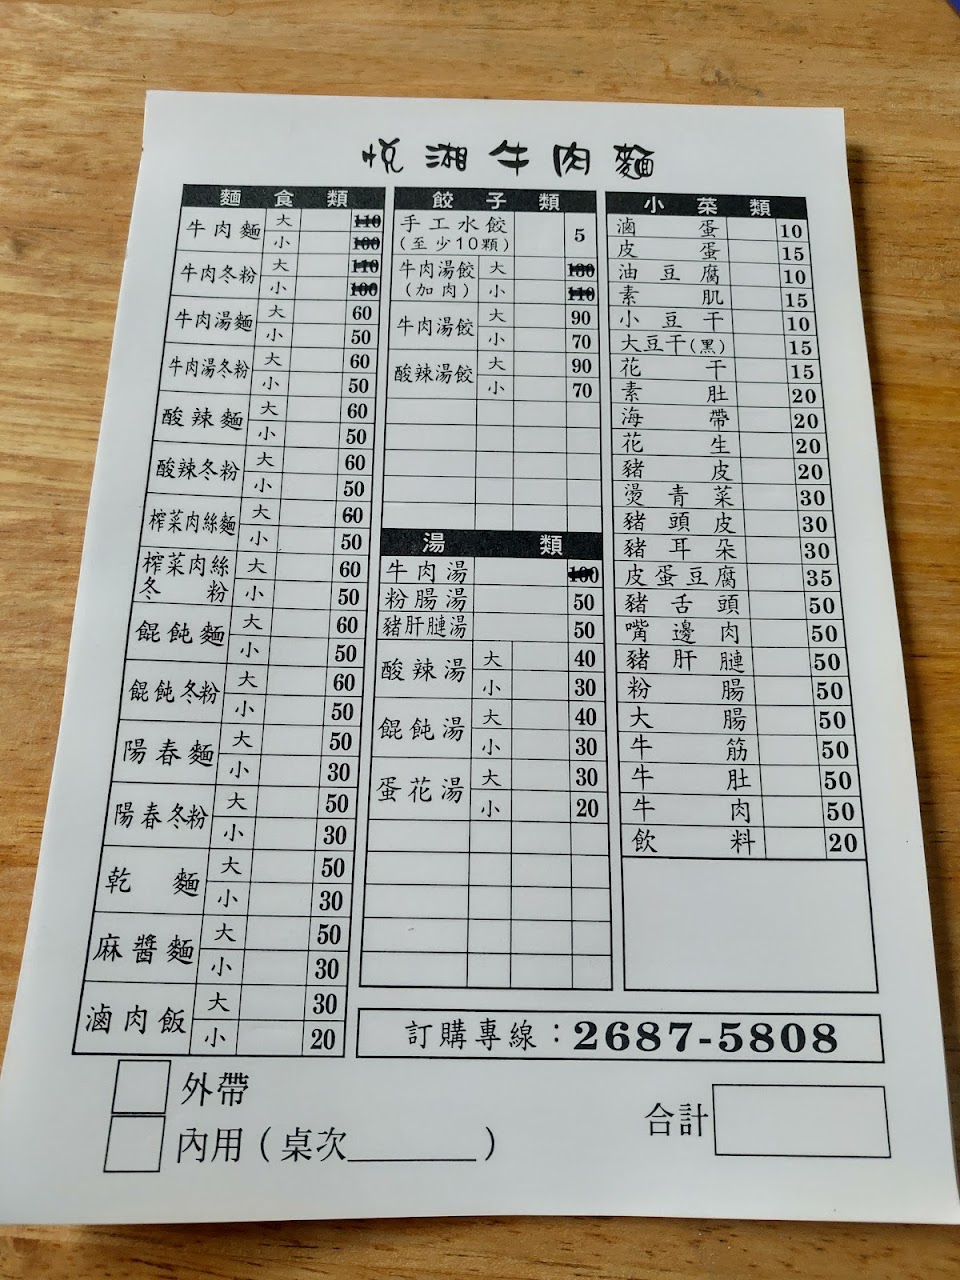 悅湘牛肉麵
麵食類
牛肉麵 大 110
小 100
牛肉冬粉 大 110
小 100
牛肉湯麵 大 60
小 50
牛肉湯冬粉 大 60
小 50
酸辣麵 大 60
小 50
酸辣冬粉 大 60
小 50
榨菜肉絲麵 大 60
小 50
榨菜肉絲冬粉 大 60
小 50
餛飩麵 大 60
小 50
餛飩冬粉 大 60
小 50
陽春麵 大 50
小 30
陽春冬粉 大 50
小 30
乾麵 大 50
小 30
麻醬麵 大 50
小 30
滷肉飯 大 30
小 20
餃子類
手工水餃 5
(至少10顆)
牛肉湯餃 大 130
(加肉) 小 110
牛肉湯餃 大 90
小 70
酸辣湯餃 大 90
小 70
湯類
牛肉湯 100
粉腸湯 50
豬肝膴湯 50
酸辣湯 大 40
小 30
餛飩湯 大 40
小 30
蛋花湯 大 30
小 20
小菜類
滷蛋 10
皮蛋 15
油豆腐 10
素肌 15
小豆干 10
大豆干(黑) 15
花干 15
素肚 20
海帶 20
花生 20
豬皮 20
燙青菜 30
豬頭皮 30
豬耳朵 30
皮蛋豆腐 35
豬舌頭 50
嘴邊肉 50
豬肝膴 50
粉腸 50
大腸 50
牛筋 50
牛肚 50
牛肉 50
飲料 20
訂購專線：2687-5808
外帶
內用(桌次______)
合計